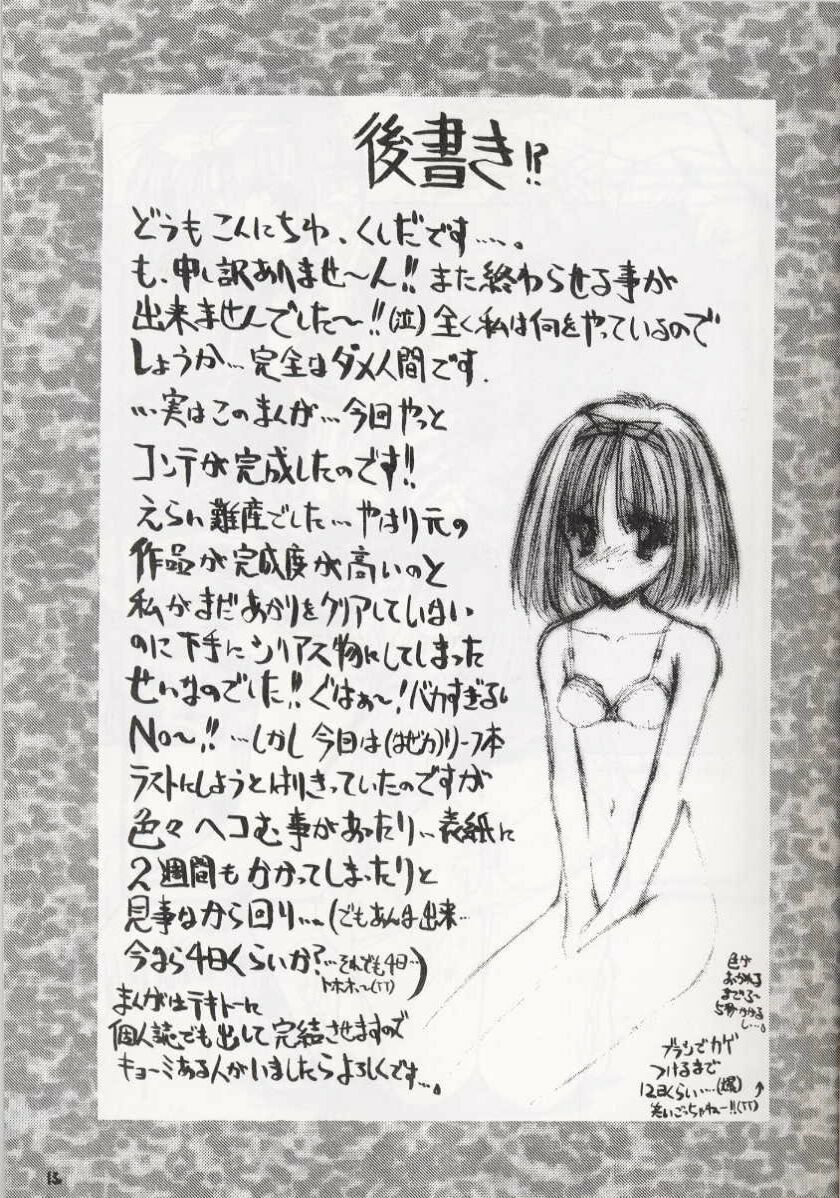 後書き!?
どうもこんにちわ、くしだです……。
も、申し訳ありませ〜ん!!また終わらせる事が
出来ませんでした〜!!(泣)全く私は何をやっているので
しょうか…完全なダメ人間です.
…実はこのまんが…今回やっと
コンテが完成したのです!!
えらい難産でした…やはり元の
作品が完成度が高いのと
私がまだあかりをクリアしていない
のに下手にシリアス物にしてしまった
せいなのでした!!ぐはぁ〜!バカすぎるし
No〜!!…しかし今日は(はぜか)リーフ本
ラストにしようとはりきっていたのですが
色々ヘコむ事があったり…表紙に
2週間もかかってしまったりと
見事なから回り…(でもあんな出来…
今なら4日くらいか?…それでも4日…
トホホ〜(TT))
まんがはテキトーに
個人誌でも出して完結させますので
キョーミある人がいましたらよろしくです…。
色が
ブラシでカゲ
つけるまで
12日くらい…(爆)
13